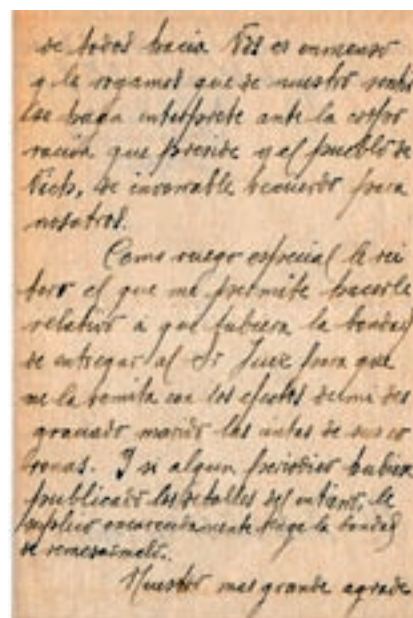 de todos hacia Vds es inmenso
y le rogamos que de nuestro
se haga interprete ante la corpo
ración que preside y el pueblo de
de imborrable recuerdo para
nosotros.
Como ruego especial le rei
tero el que me permite hacerle
relativo a que tubiera la bondad
de entregar al Sr Juez para que
me la remita con los efectos de mi des
graciado marido las cintas de sus co
ronas. Y si algun periodico hubiese
publicado los detalles del entierro, le
suplico encarecidamente tenga la bondad
de remesarmelo.
Nuestro mas grande agrade